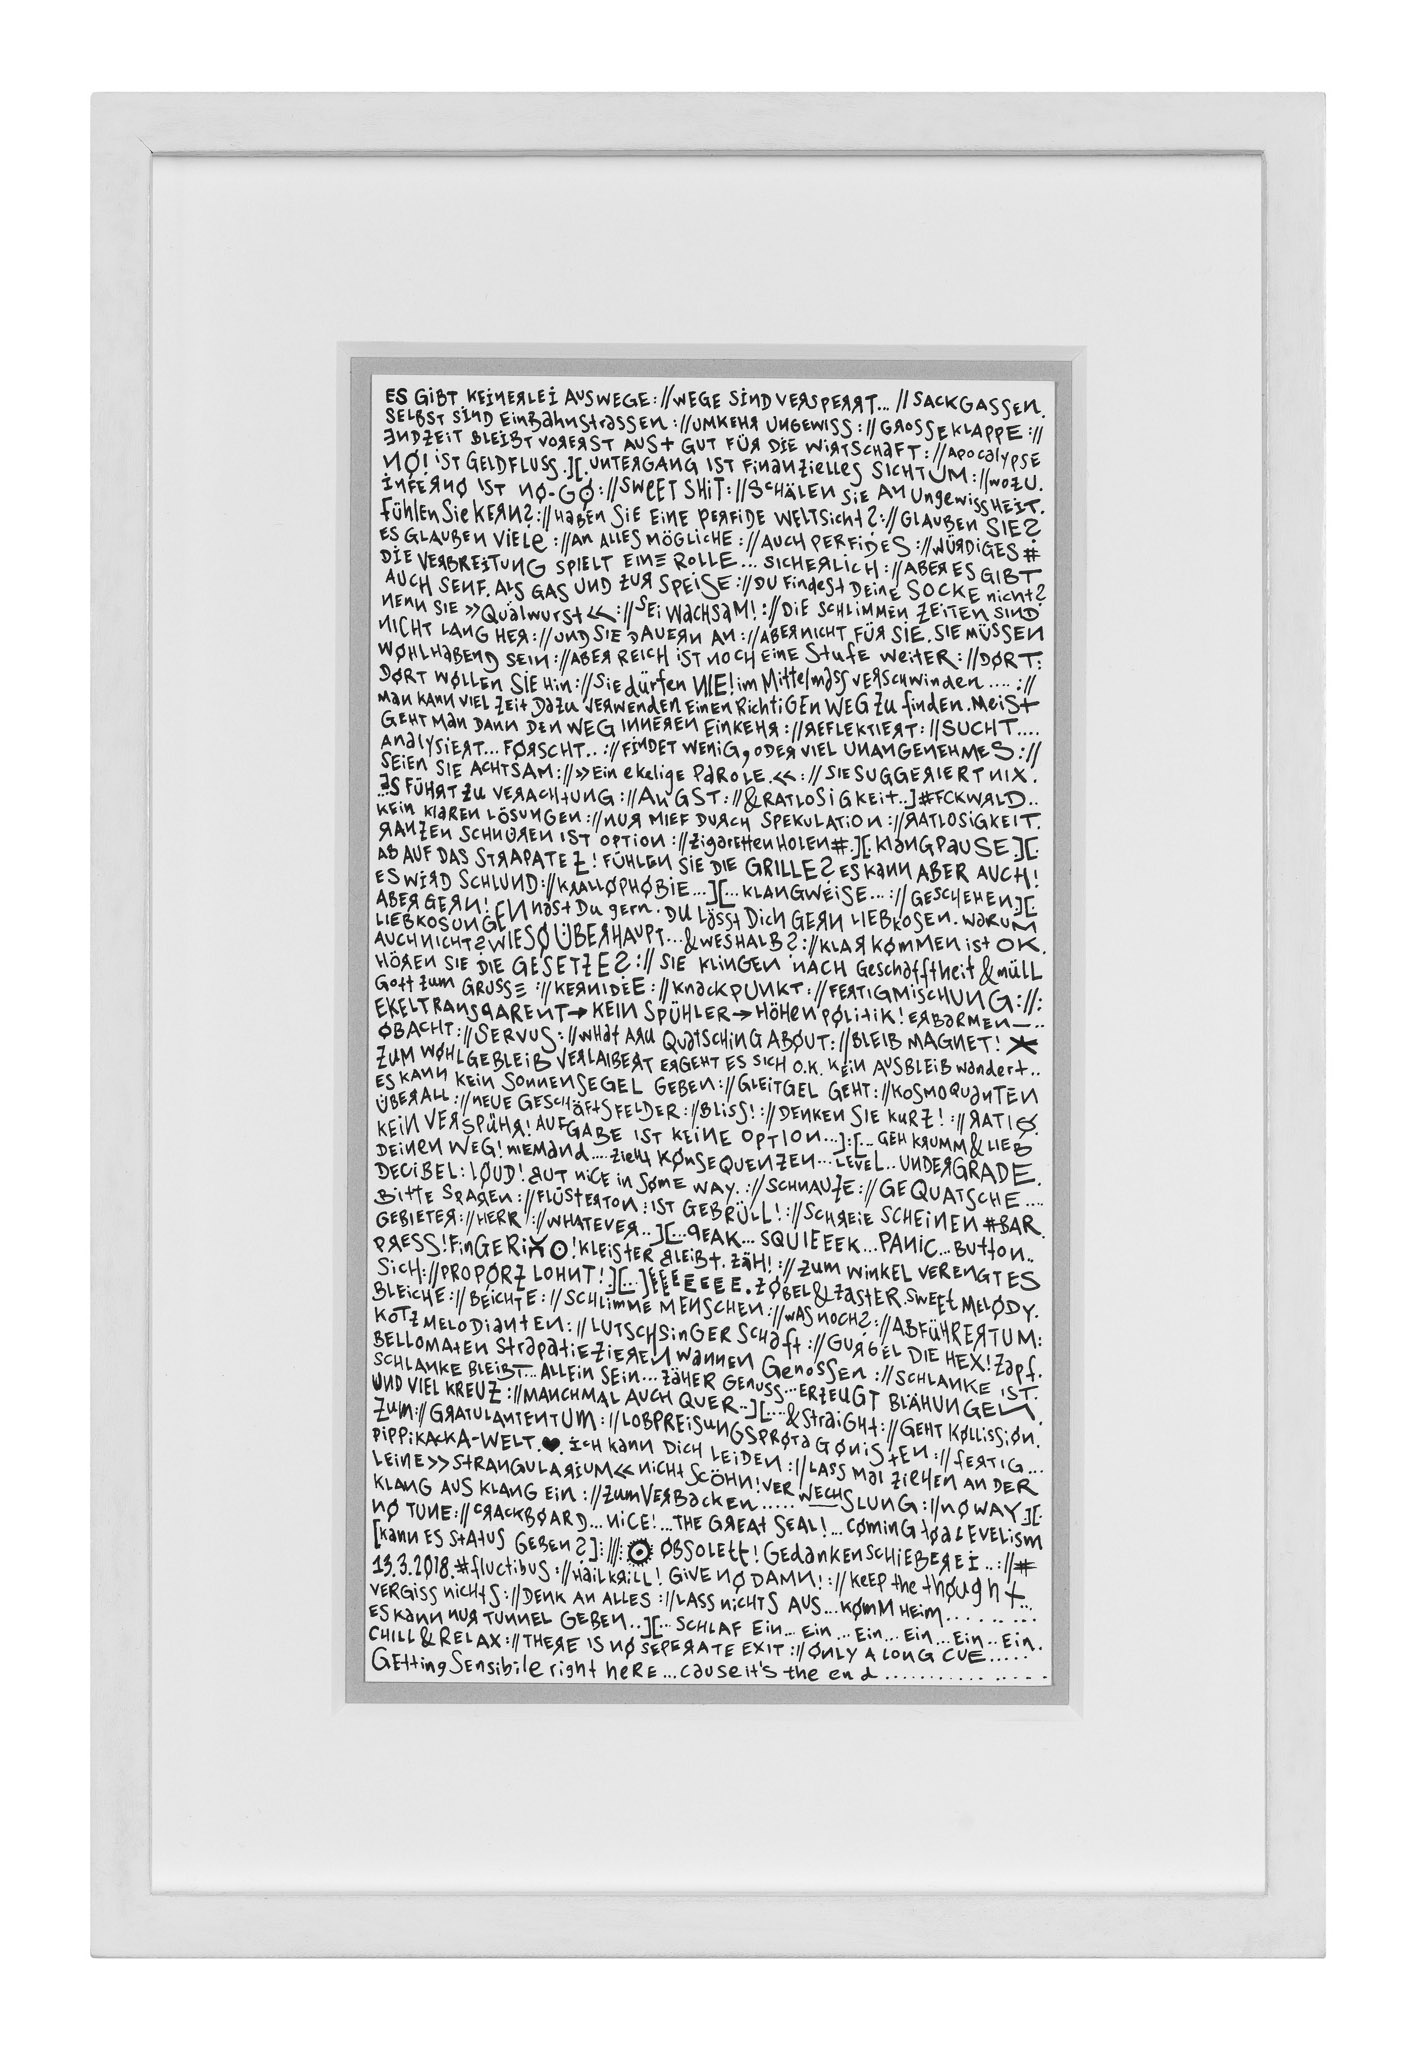 ES GiBT KEiNERLEi AUSWEGE://WEGE SiND VERSPERRT...//SACKGASSEN.
SELBST SiND EinBahnStrassen://UMKEHR UNGEWISS://GROSSE KLAPPE://
ENDZEiT BLEiBT VORERST AUS+ GUT FÜR DIE WiRTSCHAFT://APOCalYPSE
NØ! iST GELDFLUSS.][.UNTERGANG IST FiNanZielles SiCHTUM://WOZU.
iNFERNO IST NO-GO://SWEET SHiT://SCHÄLEN SiE AN UngewissHEiT.
Fühlen Sie KERN?://HABEN SiE EiNE PERFiDE WELTSicht?://GLAUBEN SIE?
ES GLAUBEN VIELe://AN ALLES MÖGLICHE://AUCH PERFIDES://WÜRDIGES#
DiE VERBREiTUNG SPiELT EINE ROLLE... SICHERLiCH://ABER ES GIBT
AUCH SENF. ALS GAS UND ZUR SPEiSE://DU FindeSt DeiNE SOCKE nicht?
NENN SIE >>Qualwurst<<://SEi WACHSAM!://DiE SCHLIMMEN ZEITEN SIND
NiCHT LANG HER://UND SIE DAUERN AN://ABER NiCHT FÜR SiE. SIE MÜSSEN
WØHLHABEND SEIN://ABER REICH iST NOCH EiNE Stufe weiTER://DØRT:
DØRT WØLLEN SIE Hin://Sie dürfen NIE! im Mittelmass VERSCHWinden....://
Man KANN VIEL ZEit DaZu VERWENDEN EINEN RichtiGEn WEG Zu finden. MeiSt
GEHT Man DANN DEN WEG INNEREN EiNKEHR://REFLEKTiERT://SUCHT....
AnalYSiERT... FØRSCHT..://FiNDET WENiG, ODER VIEL UNANGENEHMES://
SEiEN SiE ACHTSAM://>>Ein ekelige PaROLE.<<://SIE SUGGERiERT NIX.
ES FÜHRT ZU VERACHTUNG://ANGST://&RATLOSiGKEit..]#FCKWRLD..
KEiN KLAREN LÖSUNGEN://NUR MiEF DURCH SPEKULATiON://RATLOSiGKEiT.
RANZEN SCHNÜREN IST OPTiON://ZigaREttEN HOLEN#.][.KlaNGPAUSE.][.
AB AUF DAS STRAPATEZ! FÜHLEN SiE DiE GRILLE? ES KANN ABER AUCH!
ES WiRD SCHLUND://KRALLØPHØBiE...][...KLANGWEiSE...://GESCHEHEN][
ABER GERN! EN hast Du gern. DU Lässt Dich GERN LiEBKOSEN. WARUM
LiEBKOSUNG
AUCH NiCHT? WIESØ ÜBERHAUPT...&WESHALB?://KLAR KØMMEN ist OK.
HÖREN SIE DiE GESETZE?://SIE KLiNGEN NACH Geschafftheit &müLL
Gott Zum GRUSSE://KERNiDEE://KnackPUNKT://FERTiGMiSCHUNG://:
EKELTRANSPARENT→KEiN SPÜHLER→HöHEnPØLitiK! ERBARMEN—..
ØBACHT://SERVUS://WHAt ARU QUATSCHiNG ABØUT://BLEiB MAGNET!
ZUM WØHLGEBLEiB VERLAIBERT ERGEHT ES SICH O.K. KEiN AUSBLEiB wandert..
ES KANN KEiN SONNENSEGEL GEBEN://GLEiTGEL GEHT://KOSMOQUaNTEN
ÜBERALL://NEUE GESCHÄFTSFELDER://BLiSS!://DENKEN SIE KURZ!://RATIØ.
KEiN VERSPÜHR! AUFGABE iST KEiNE OPTiON...]:[...GEH KRUMM&LiEB
DEiNEN WEG! NiEMANd....Zieht KØNSEQUENZEN...LEVEL..UNDERGRADE.
DECiBEL: LOUD! BUT NiCE in SØME WAY.://SCHNAUZE://GEQUATSCHE....
BittE SPAREN://FLÜSTERTON:iST GEBRÜLL!://SCHREiE SCHEiNEN #BAR
GEBiETER://HERR://WHATEVER..][...PEAK...SQUIEEEK...PANiC...BUttoN..
PRESS! FinGERiX ⊙! KLEiSTER BLEiBt. ZÄH!://ZUM WiNKEL VERENGT ES
SiCH://PROPØRZ LOHNT!][...]EEEEEEE. ZØBEL&ZaSTER. SWEEt MELØDY.
BLEiCHE://BEiCHTE://SCHLiMME MENSCHEN://WAS NOCH?://ABFüHRERTUM:
KOTZMELODianTEN://LUTSCHSiNGERSCHaft://GURGEL DiE HEX! Zapf.
BELLOMATEN StRapatiEZiEREN WANNEN GenoSSen://SCHLANKE iST.
SCHLANKE BLEiBT... ALLEin SEin... ZÄHER GENUSS...ERZEUGT BLÄHUNGEN.
UND VIEL KREUZ://MANCHMAL AUCH QUER..][...&StRaiGHt://GEHT KØLLiSSiØN.
ZUM://GRATULANTENTUM://LOBPREiSUNGSPRØTAGØNiSTEN://fERTiG...
PiPPiKACKA-WELT.♥. iCH KANN DiCH LEiDEN://LASS MAL ZiEHEN AN DER
LEiNE>>STRANGULARiUM<< NiCHt SCÖHN! VERWECHSLUNG://NO WAY][.
KLANG AUS KLANG EiN://ZUM VERBACKEN.....
NØ TUNE://CRACKBOARD...NiCE!...THE GREAt SEAL!...COMiNG tØ a LEVELiSM
[KANN ES STATUS GEBEN?]://: ØBSOLEtt! GEDaNKENSCHiEBEREi...://#
13.3.2018.#fluctibus://HAiLKRiLL! GiVE NØ DAMN!://KEEP the thought...
VERGiSS NiCHtS://DENK AN ALLES://LASS NiCHTS AUS...KØMM HEiM.......
ES KANN NUR TUNNEL GEBEN..][... SCHLAF EiN... Ein...Ein...Ein...Ein..Ein.
CHILL & RELAX://THERE IS NØ SEPERATE EXiT://ØNLY A LONG CUE.....
GEtting Sensibile right heRE...cause it's the end ..................